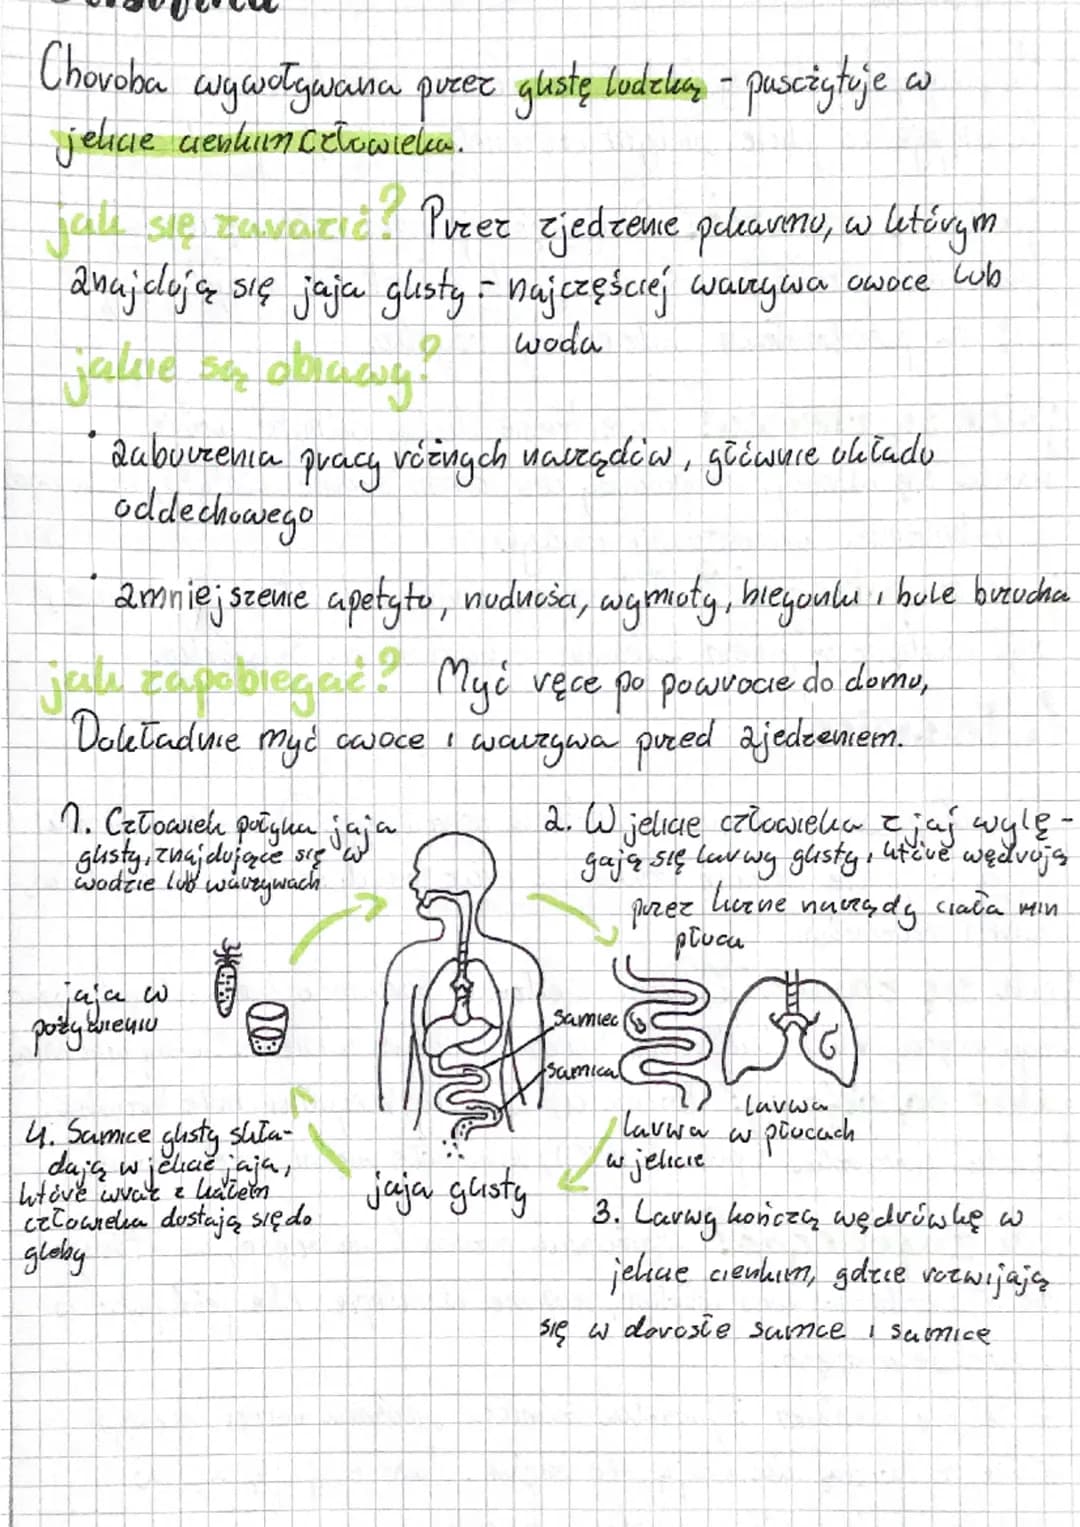 Choroba wywoływana przez glistę ludzką - pasożytuje w
jelicie cienkim człowieka.
jak się zarazić? Przez zjedzenie pokarmu, w którym
znajdują się jaja glisty - najczęściej warzywa owoce lub
woda
jakie są objawy?
• zaburzenia pracy różnych narządów, głównie układu
oddechowego
• zmniejszenie apetytu, nudności, wymioty, biegunki i bóle brzucha
jak zapobiegać? Myć ręce po powrocie do domu,
Dokładnie myć owoce i warzywa przed zjedzeniem.
1. Człowiek połyka jaja
glisty, znajdujące się w
wodzie lub warzywach
2. W jelicie człowieka z jaj wylę-
gają się larwy glisty, które wędrują
przez liczne narządy ciała min
płuca
jaja w
pożywieniu
samiec
samica
larwa
w jelicie
larwa
w płucach
jaja glisty
4. Samice glisty skła-
dają w jelicie jaja,
które wraz z kałem
człowieka dostają się do
gleby
3. Larwy kończą wędrówkę w
jelicie cienkim, gdzie rozwijają
się w dorosłe samce i samice